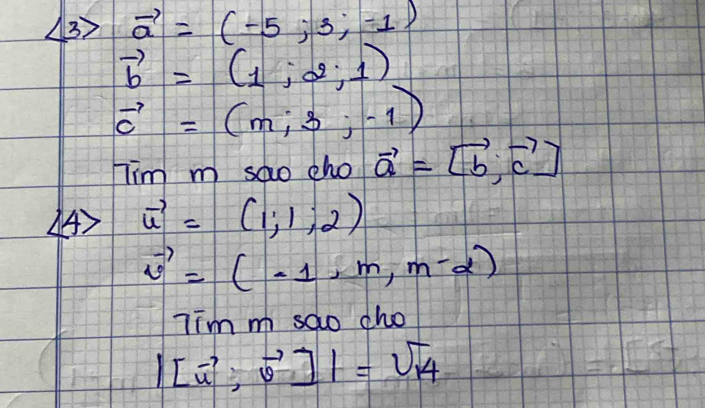 <3> a⃗ = (-5 ; 3 ; -1)
b⃗ = (1 ; 2 ; 1)
c⃗ = (m ; 3 ; -1)
Tìm m sao cho a⃗ = [b⃗ ; c⃗]
<4> u⃗ = (1 ; 1 ; 2)
v⃗ = (-1 , m , m-2)
Tìm m sao cho
|[u⃗ ; v⃗]| = √14